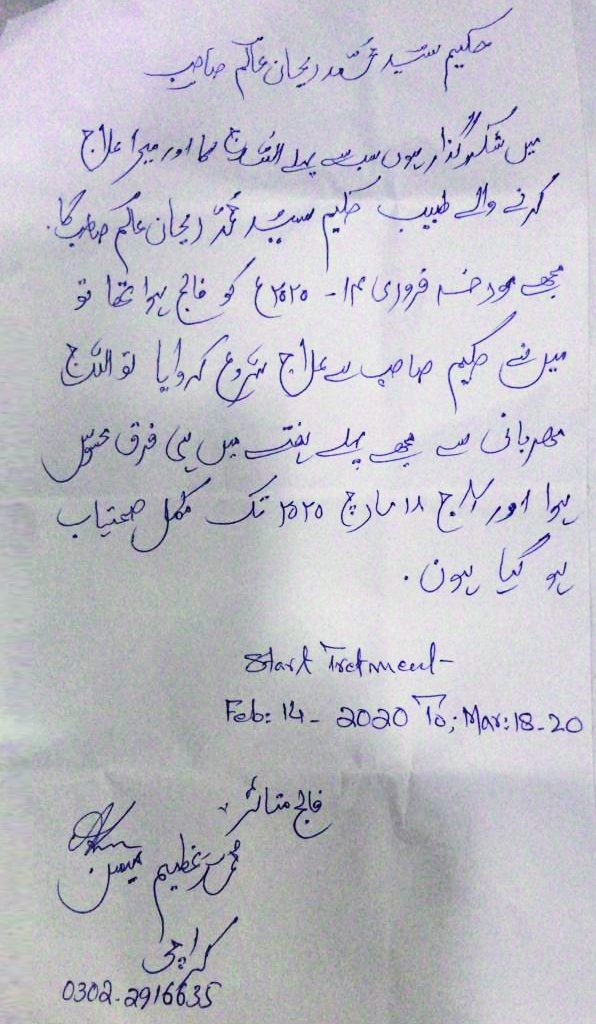 حکیم سید محمد ریحان عالم صاحب
میں شکر گذار ہوں سب سے پہلے اللہ کا اور میرا علاج
کرنے والے طبیب حکیم سید محمد ریحان عالم صاحب کا.
مجھے مورخہ فروری ۱۴ - ۲۰۲۰ع کو فالج ہوا تھا تو
میں نے حکیم صاحب سے علاج شروع کروایا تو اللہ
مهربانی سے مجھے پہلے ہفتے میں ہی فرق محسوس
ہوا اور آج ۱۸ مارچ ۲۰۲۰ تک مکمل صحتیاب
ہو گیا ہون.
Start Tretment-
Feb: 14 - 2020 To; Mar: 18-20
فالج متاثر
محمد عظیم میمن
کراچی
0302-2916635